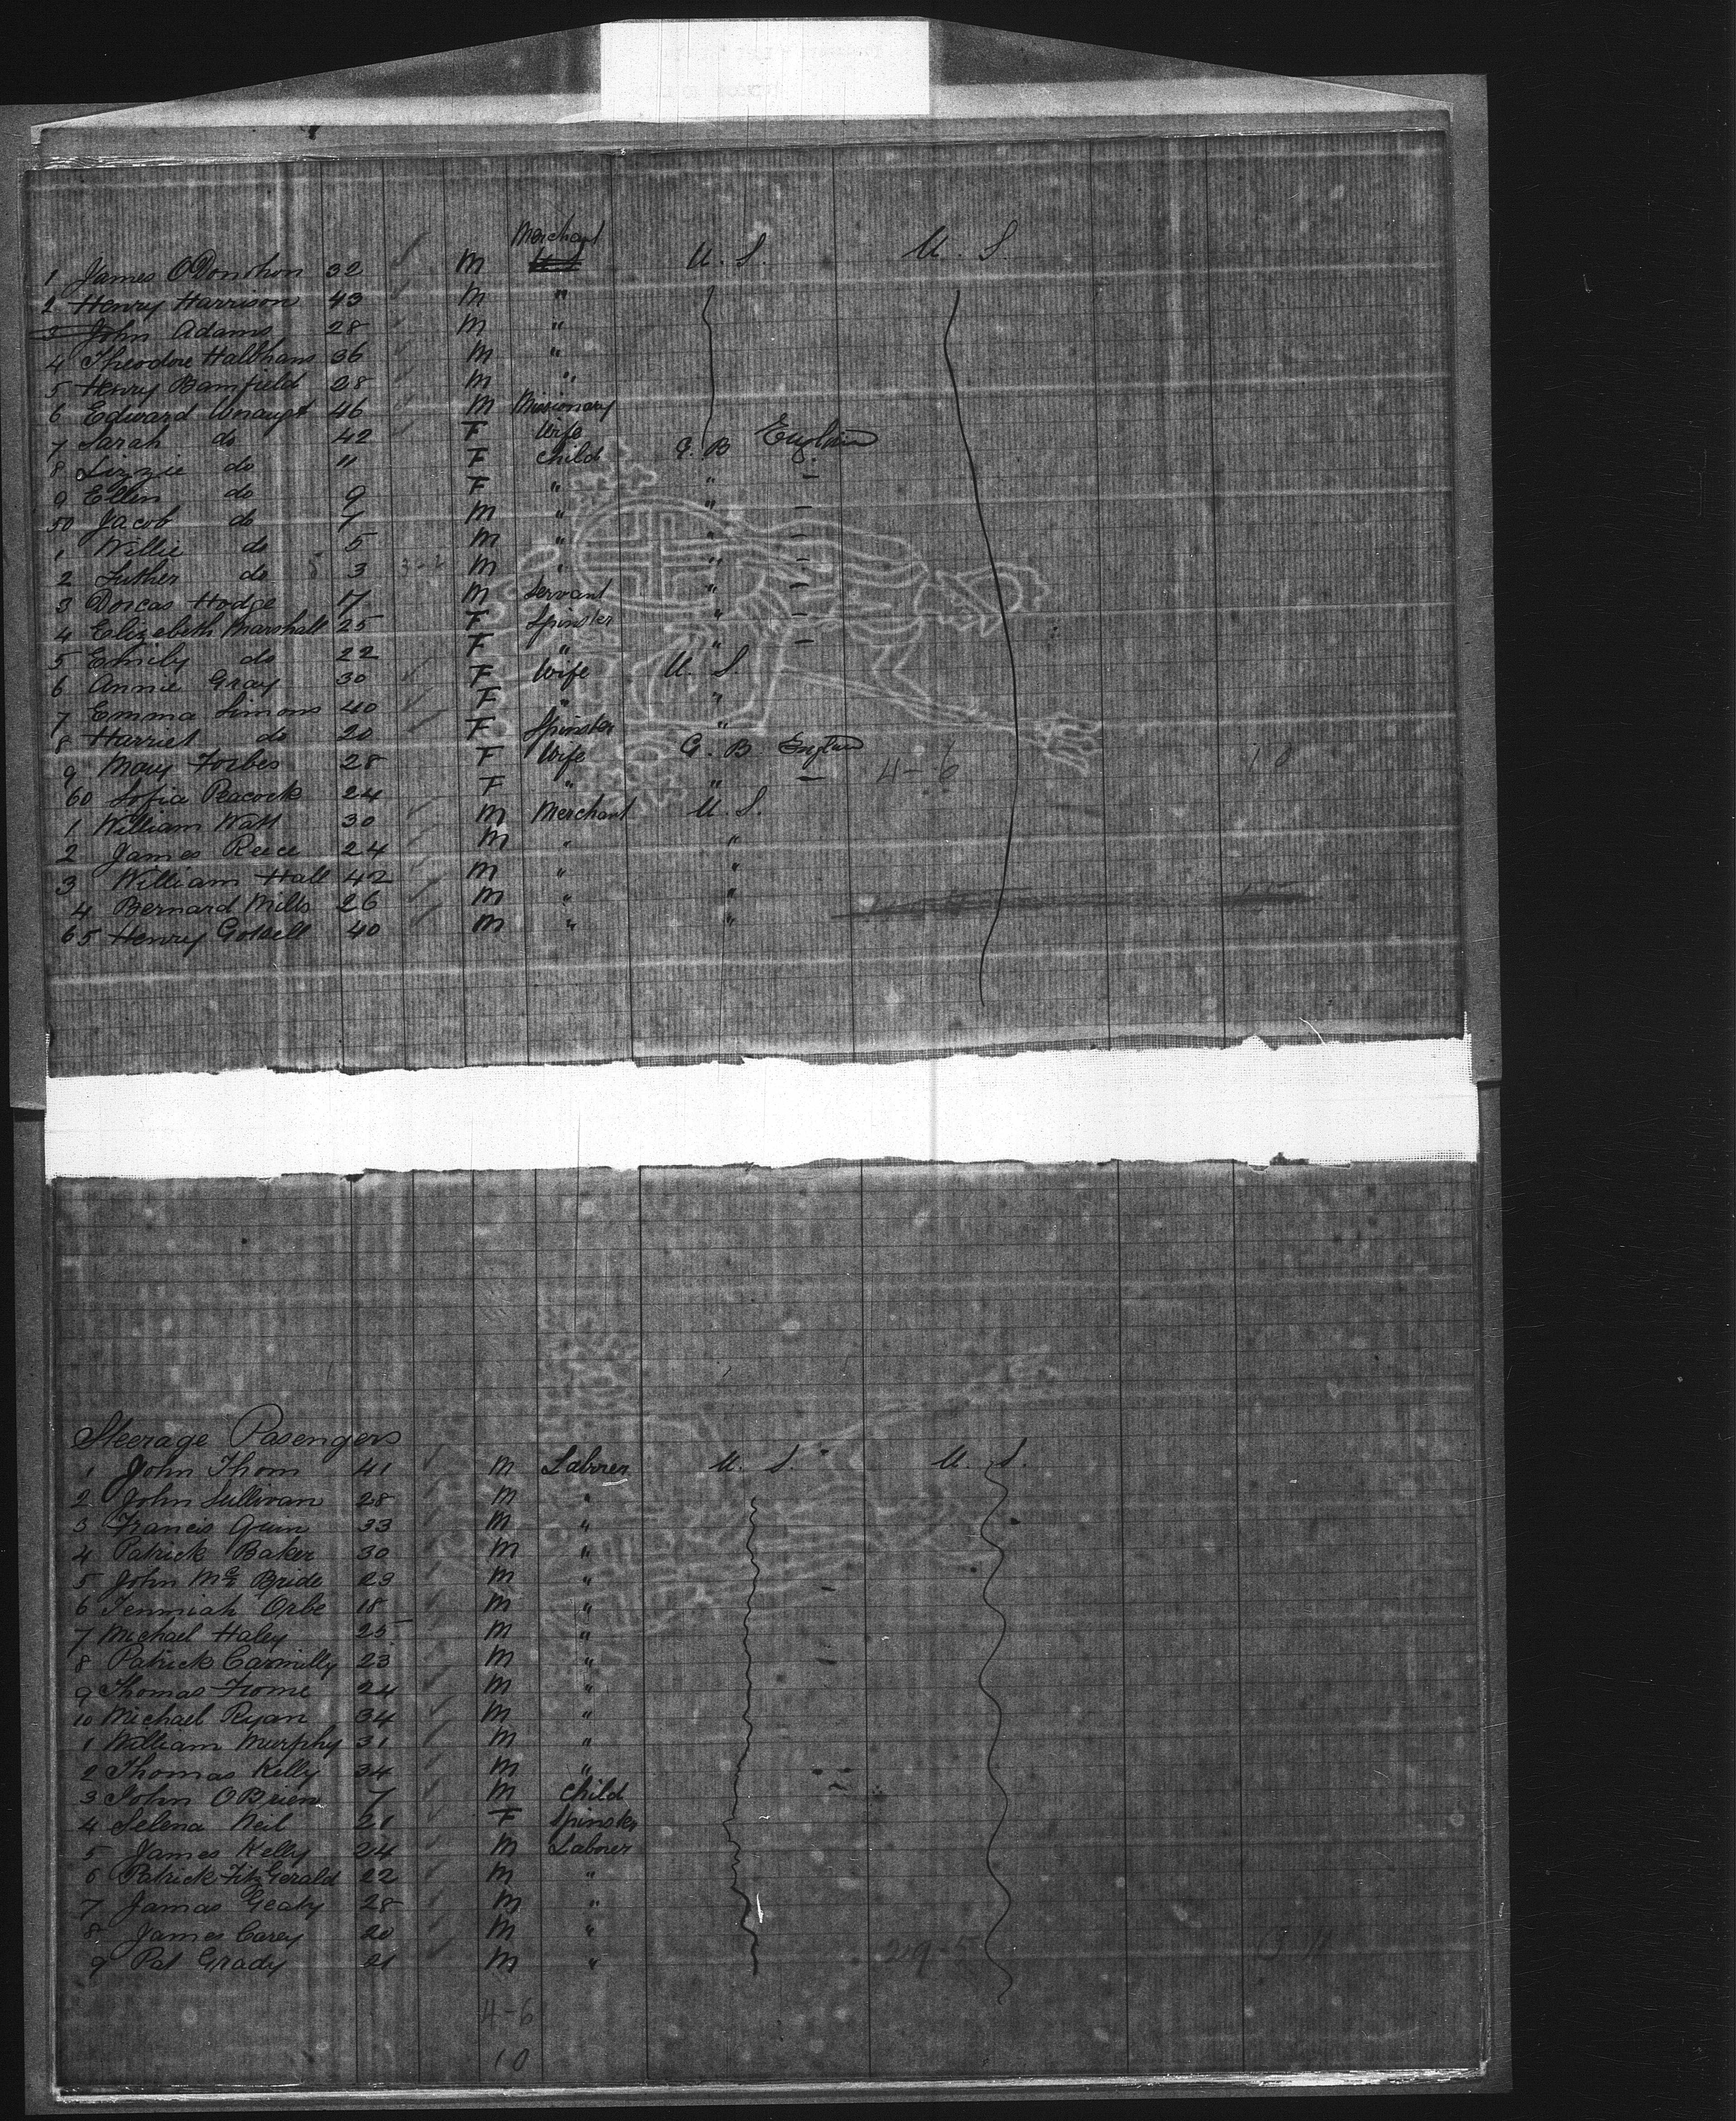 Merchant
1 James O'Donohon 32 M U. S. U. S.
2 Henry Harrison 43 M "
3 John Adams 28 M "
4 Theodore Halbhans 36 M "
5 Henry Bamfield 28 M "
6 Edward 46 M Missionary
7 Sarah do 42 F Wife
8 Lizzie do 11 F Child G. B England
9 Ellen do 9 F " " -
50 Jacob do 7 M " " -
1 Willie do 5 M " " -
2 Luther do 3 M " " -
3 Dorcas Hodge 17 M Servant " -
4 Elizebeth Marshall 25 F Spinster " -
5 Emily do 22 F " " -
6 Annie Gray 30 F Wife U. S.
7 Emma Simons 40 F " "
8 Harriet do 20 F Spinster "
9 Mary Forbes 28 F Wife G. B England 4-6 10
60 Sofia Peacock 24 F " " -
1 William Watt 30 M Merchant U. S.
2 James Reece 24 M " "
3 William Hall 42 M " "
4 Bernard Mills 26 M " "
65 Henry 40 M " "
Steerage Pasengers
1 John Thom 41 M Laborer U. S. U. S.
2 John Sullivan 28 M "
3 Francis Quin 33 M "
4 Patrick Baker 30 M "
5 John Mc Bride 23 M "
6 Jenmiah Orbe 18 M "
7 Michael Haley 25 M "
8 Patrick Carmilly 23 M "
9 Thomas Frome 24 M "
10 Michael Ryan 34 M "
1 William Murphy 31 M "
2 Thomas Kelly 34 M "
3 John O'Brien 7 M Child
4 Selena Neil 21 F Spinster
5 James Kelly 24 M Laborer
6 Patrick FitzGerald 22 M "
7 James Geaty 28 M "
8 James Carey 20 M "
9 Pat Grady 21 M " 29-5
4-6
10